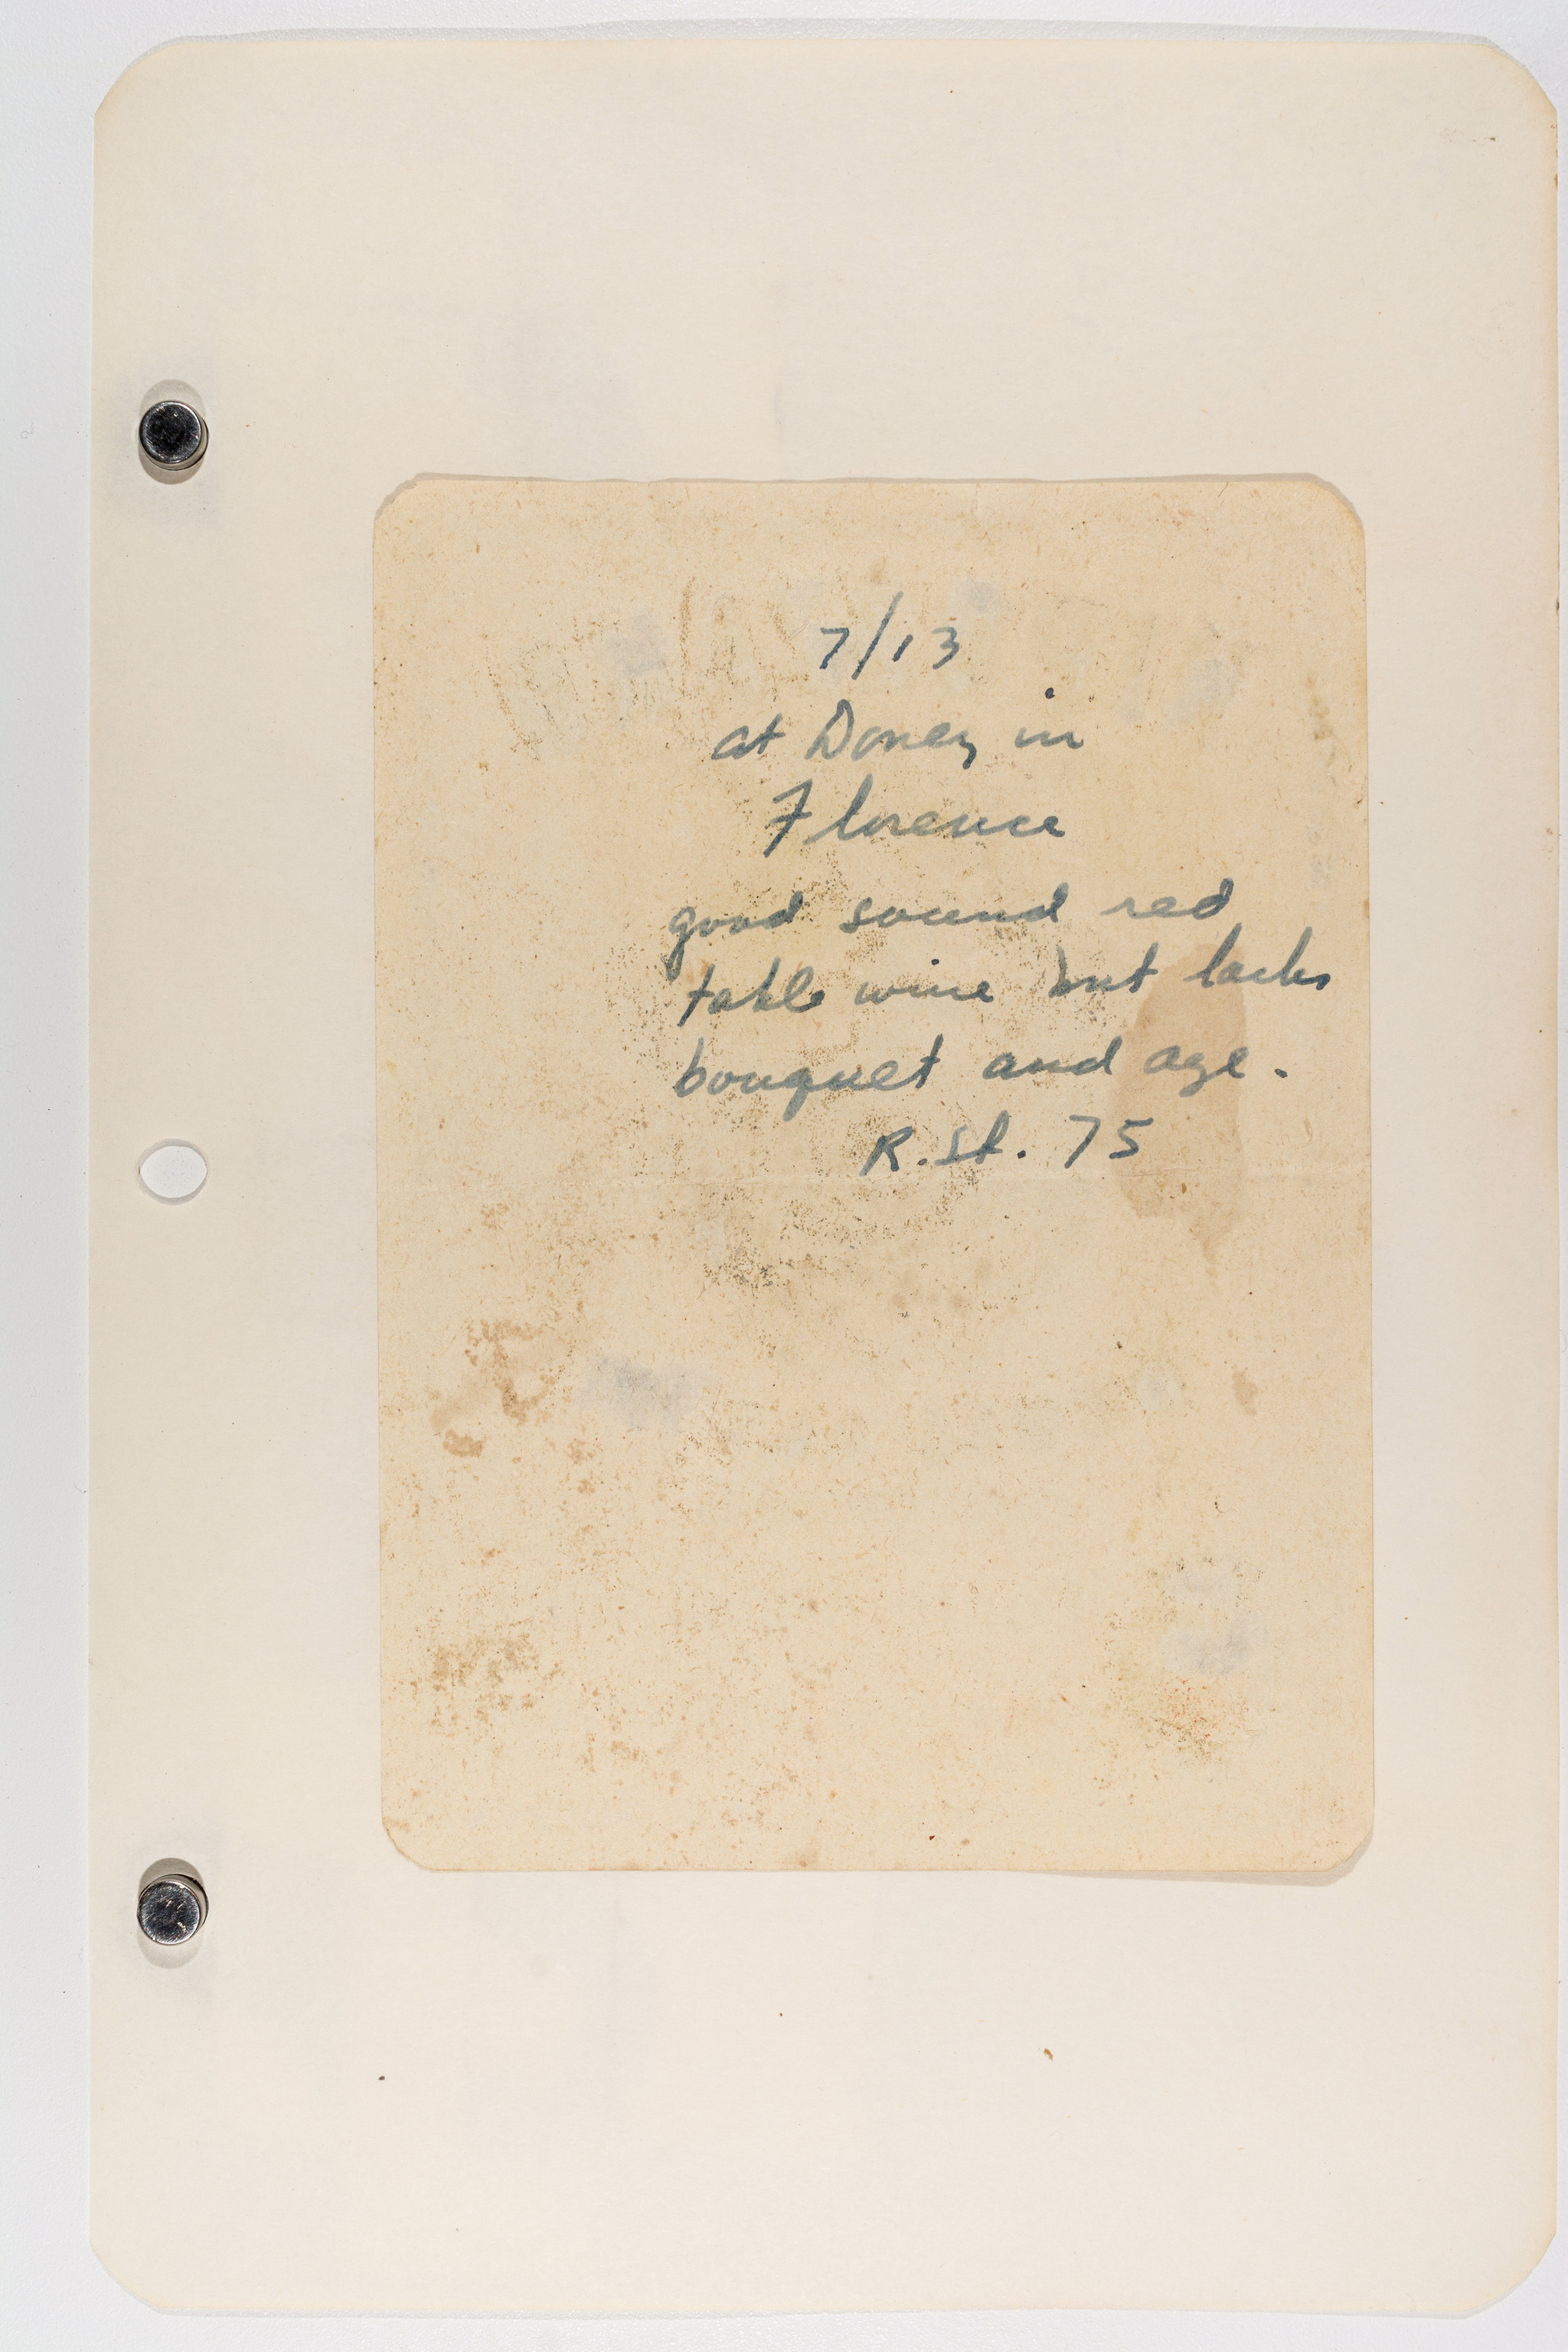 7/13
at Doney in
Florence
good sound red
table wine but lacks
bouquet and age.
R.St. 75